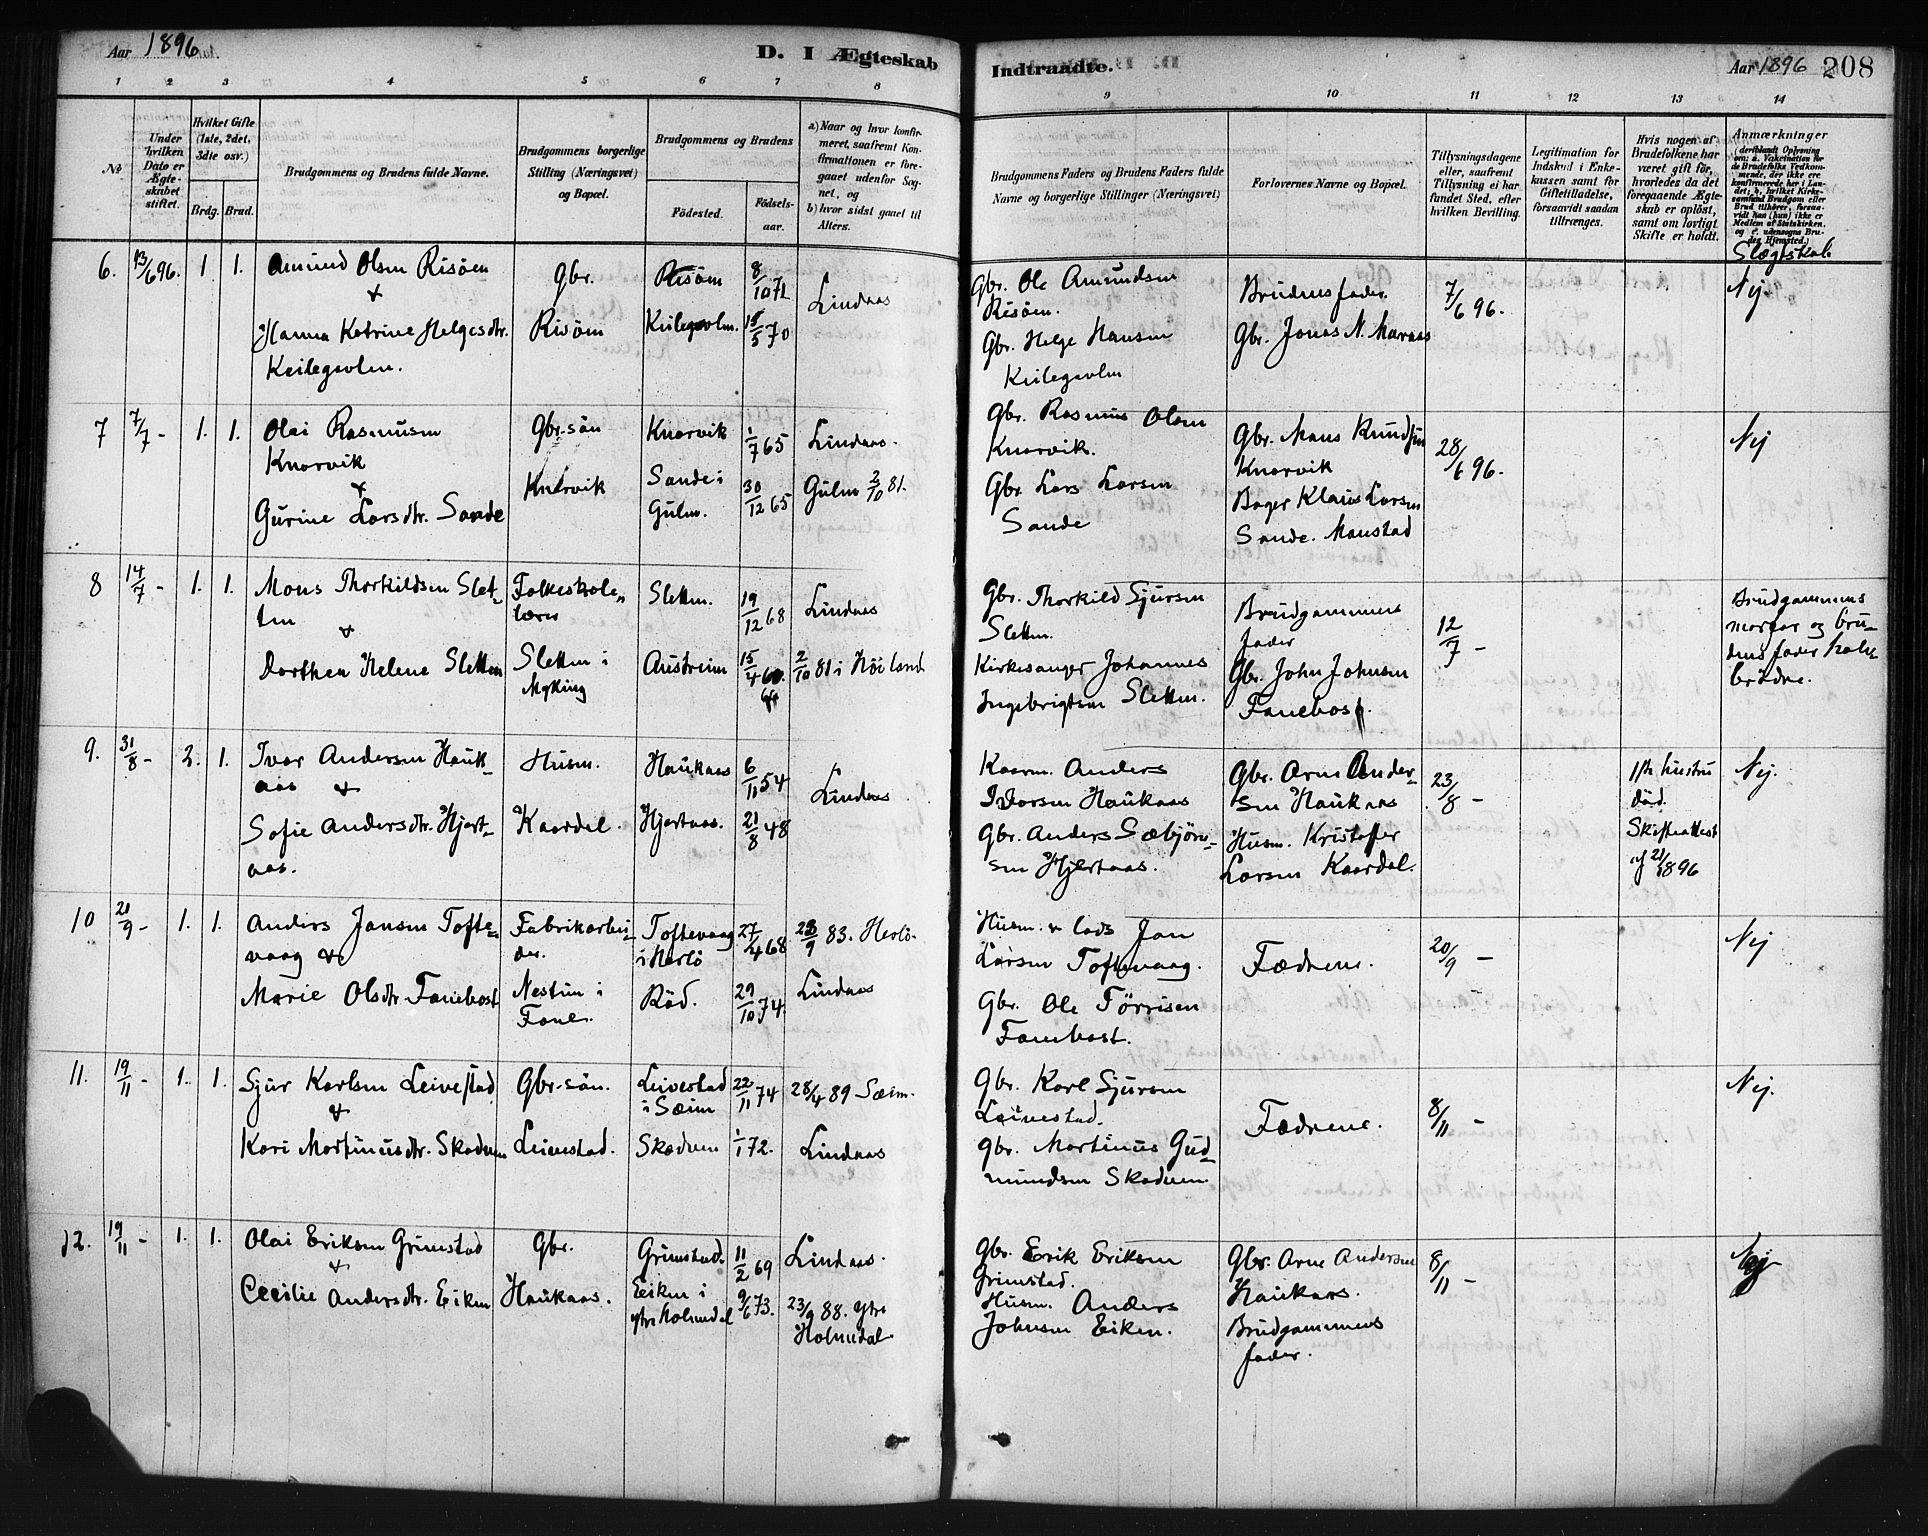 Aar 1896
D. I Ægteskab
Indtraadte.
Aar 1896 208
1 2 3 4 5 6 7 8
9 10 11 12 13 14
№
Under hvilken Dato er Ægteskabet stiftet.
Hvilket Gifte (1ste, 2det, 3die osv.)
Brdg. Brud.
Brudgommens og Brudens fulde Navne.
Brudgommens borgerlige Stilling (Næringsvei) og Bopæl.
Brudgommens og Brudens
Fødested.
Fødselsaar.
a) Naar og hvor konfirmeret, saafremt Konfirmationen er foregaaet udenfor Sognet, og
b) hvor sidst gaaet til Alters.
Brudgommens Faders og Brudens Faders fulde Navne og borgerlige Stillinger (Næringsvei)
Forlovernes Navne og Bopæl.
Tillysningsdagene eller, saafremt Tillysning ei har fundet Sted, efter hvilken Bevilling.
Legitimation for Indskud i Enkekassen samt for Giftetilladelse, forsaavidt saadan tiltrænges.
Hvis nogen af Brudefolkene har været gift før, hvorledes da det foregaaende Ægteskab er opløst, samt om lovligt Skifte er holdt.
Anmærkninger
Slægtskab
6. 13/6 96. 1. 1. Amund Olsen Risöen
&
Hanna Katrine Helgesdtr.
Keilegavlen.
Gbr.
Risöen
Risöen 8/10 71
Keilegavlen. 15/5 70
Lindaas
Gbr. Ole Amundsen
Risöen.
Gbr. Helge Hansen
Keilegavlen
Brudens fader.
Gbr. Jonas N. Maraas
7/6 96.
Nej
7 7/7 - 1. 1. Olai Rasmusen
Knarvik
&
Gurine Larsdtr. Sande
Gbr. sön
Knarvik
Knarvik 1/7 65
Sande i
Gulen. 30/12 65
Lindaas.
Gulen 2/10 81.
Gbr. Rasmus Olsen
Knarvik.
Gbr. Lars Larsen
Sande
Gbr. Mans Knudsen
Knarvik
Bager Klaus Larsen
Sande. Manstad
28/6 96.
Nej
8 14/7 - 1. 1. Mons Thorkildsen Slet-
ten
&
Dorthea Helene Sletten
Folkeskole-
lærer
Sletten i
Myking
Sletten. 19/12 68
Austreim 15/4 64
Lindaas
2/10 81 i Höiland
Gbr. Thorkild Sjursen
Sletten.
Kirkesanger Johannes
Ingebrigtsen Sletten.
Brudgommens
fader
Gbr. John Johnsen
Fanebost.
12/7 -
Brudgommens
morfar og bru-
dens fader halv-
brödre.
9. 31/8 - 2. 1. Ivar Andersen Hauk-
aas &
Sofie Andersdtr. Hjert-
aas.
Husm.
Kaardal.
Haukaas 6/11 54
Hjertaas. 21/8 48
Lindaas
Kaarm. Anders
Ivarsen Haukaas
Gbr. Anders Sæbjörn-
sen Hjertaas.
Gbr. Arne Ander-
sen Haukaas
Husm. Kristoffer
Larsen Kaardal.
23/8 -
1ste hustru
död.
Skifteattest
af 21/8 96
Nej.
10 21/9 - 1. 1. Anders Jansen Tofte-
vaag &
Marie Olsdtr. Fanebost
Fabrikarbei-
der.
Nestun i
Fane.
Toftevaag
i Herlö 27/4 68
Röd. 29/10 74.
23/9 83. Herlö.
Lindaas
Husm. & lods Jan
Larsen Toftevaag.
Gbr. Ole Törrisen
Fanebost.
Fædrene.
20/9 -
Nej
11. 19/11 - 1. 1. Sjur Karlsen Leivestad
&
Kari Martinusdtr. Skaduen
Gbr. sön.
Leivestad.
Leivestad
i Sæim 22/11 74
Skaduen 1/1 72.
28/4 89 Sæim.
Lindaas
Gbr. Karl Sjursen
Leivestad.
Gbr. Martinus Gud-
mundsen Skaduen
Fædrene.
8/11 -
Nej.
12. 19/11 - 1. 1. Olai Eriksen Grimstad
&
Cecilie Andersdtr. Eiken
Gbr.
Haukaas.
Grimstad. 11/2 69
Eiken i
ytre Holmedal 9/6 73.
Lindaas.
23/9 88. ytre
Holmedal
Gbr. Erik Eriksen
Grimstad.
Husm. Anders
Johnsen Eiken.
Gbr. Arne Andersen
Haukaas.
Brudgommens
fader.
8/11 -
Nej